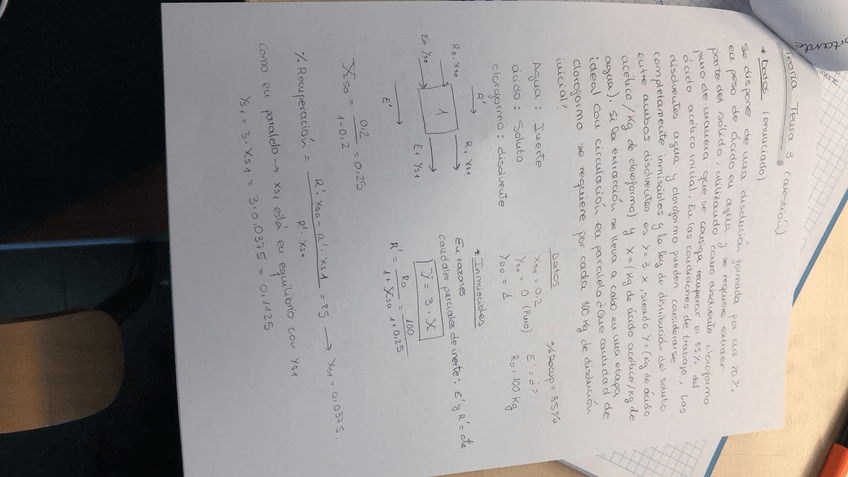 Teoría Tema 3 (cuestión)
* Datos (enunciado)
Se dispone de una disolución formada por un 20%
en peso de ácido en agua y se requiere extraer
parte del sólido, utilizando como disolvente cloroformo
puro de manera que se consiga recuperar el 85% del
ácido acético inicial. En las condiciones de trabajo, los
disolventes agua y cloroformo pueden considerarse
completamente inmiscibles y la ley de distribución del soluto
entre ambos disolventes es Y=3·X, siendo Y=(kg de ácido
acético/kg de cloroformo) y X=(kg de ácido acético/kg de
agua). Si la extracción se lleva a cabo en una etapa
ideal con circulación en paralelo ¿Qué cantidad de
cloroformo se requiere por cada 100 kg de disolución
inicial?
Agua: Inerte
ácido: Soluto
cloroformo: disolvente
Datos %Recup = 85%
XS0 = 0,2 E' = ¿?
YS0 = 0 (Puro) R0 = 100 kg
YD0 = 1
R'
R0, XS0 R1 YS1
1
E0 YS0 E1 YS1
E'
* Inmiscibles
En razones
caudales parciales de inerte: E' y R' = cte
Y = 3·X
XS0 = 0,2 / 1-0,2 = 0,25
R' = R0 / 1+XS0 100 / 1+0,25
% Recuperación = R'·XS0 - R'·XS1 / R'·XS0 = 85 → XS1 = 0,0375.
como en paralelo → XS1 está en equilibrio con YS1
YS1 = 3·XS1 = 3·0,0375 = 0,1125